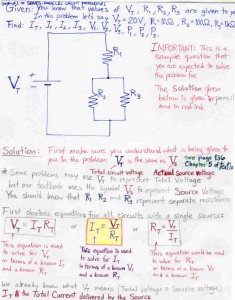 Given: You know that values of V_T, R₁, R₂, R₃ are given to you
In this problem let's say V_T = 20V, R₁ = 10Ω, R₂ = 100Ω, R₃ = 1KΩ
Find: I_T, I₁, I₂, I₃, V₁, V₂, V₃, P₁, P₂, P₃
IMPORTANT: This is a
sample question that
you are expected to solve
the problem for.
The Solution given
below is given in pencil
and in red ink.
V_T
R₁
R₂
R₃
Solution: First make sure you understand what is being given to
you in the problem: V_T is the same as V_S see page 136
Chapter 5 of Text
Total circuit voltage Actual Source Voltage
* Some problems may use V_T to represent Total Voltage
but our textbook uses the symbol V_S to represent Source Voltage.
You should know that R₁ R₂ and R₃ represent separate resistors
First derive equations for all circuits with a single source:
V_T = I_T R_T or I_T = V_T / R_T or R_T = V_T / I_T
This equation is used
to solve for V_T
in terms of a known I_T
and a known R_T
This equation is used
to solve for I_T
in terms of a known V_T
and a known R_T
This equation could be
used to solve for R_T
in terms of a known V_T
and a known I_T
We already know what V_T means (Total voltage = Source voltage)
I_T is the Total Current delivered by the Source